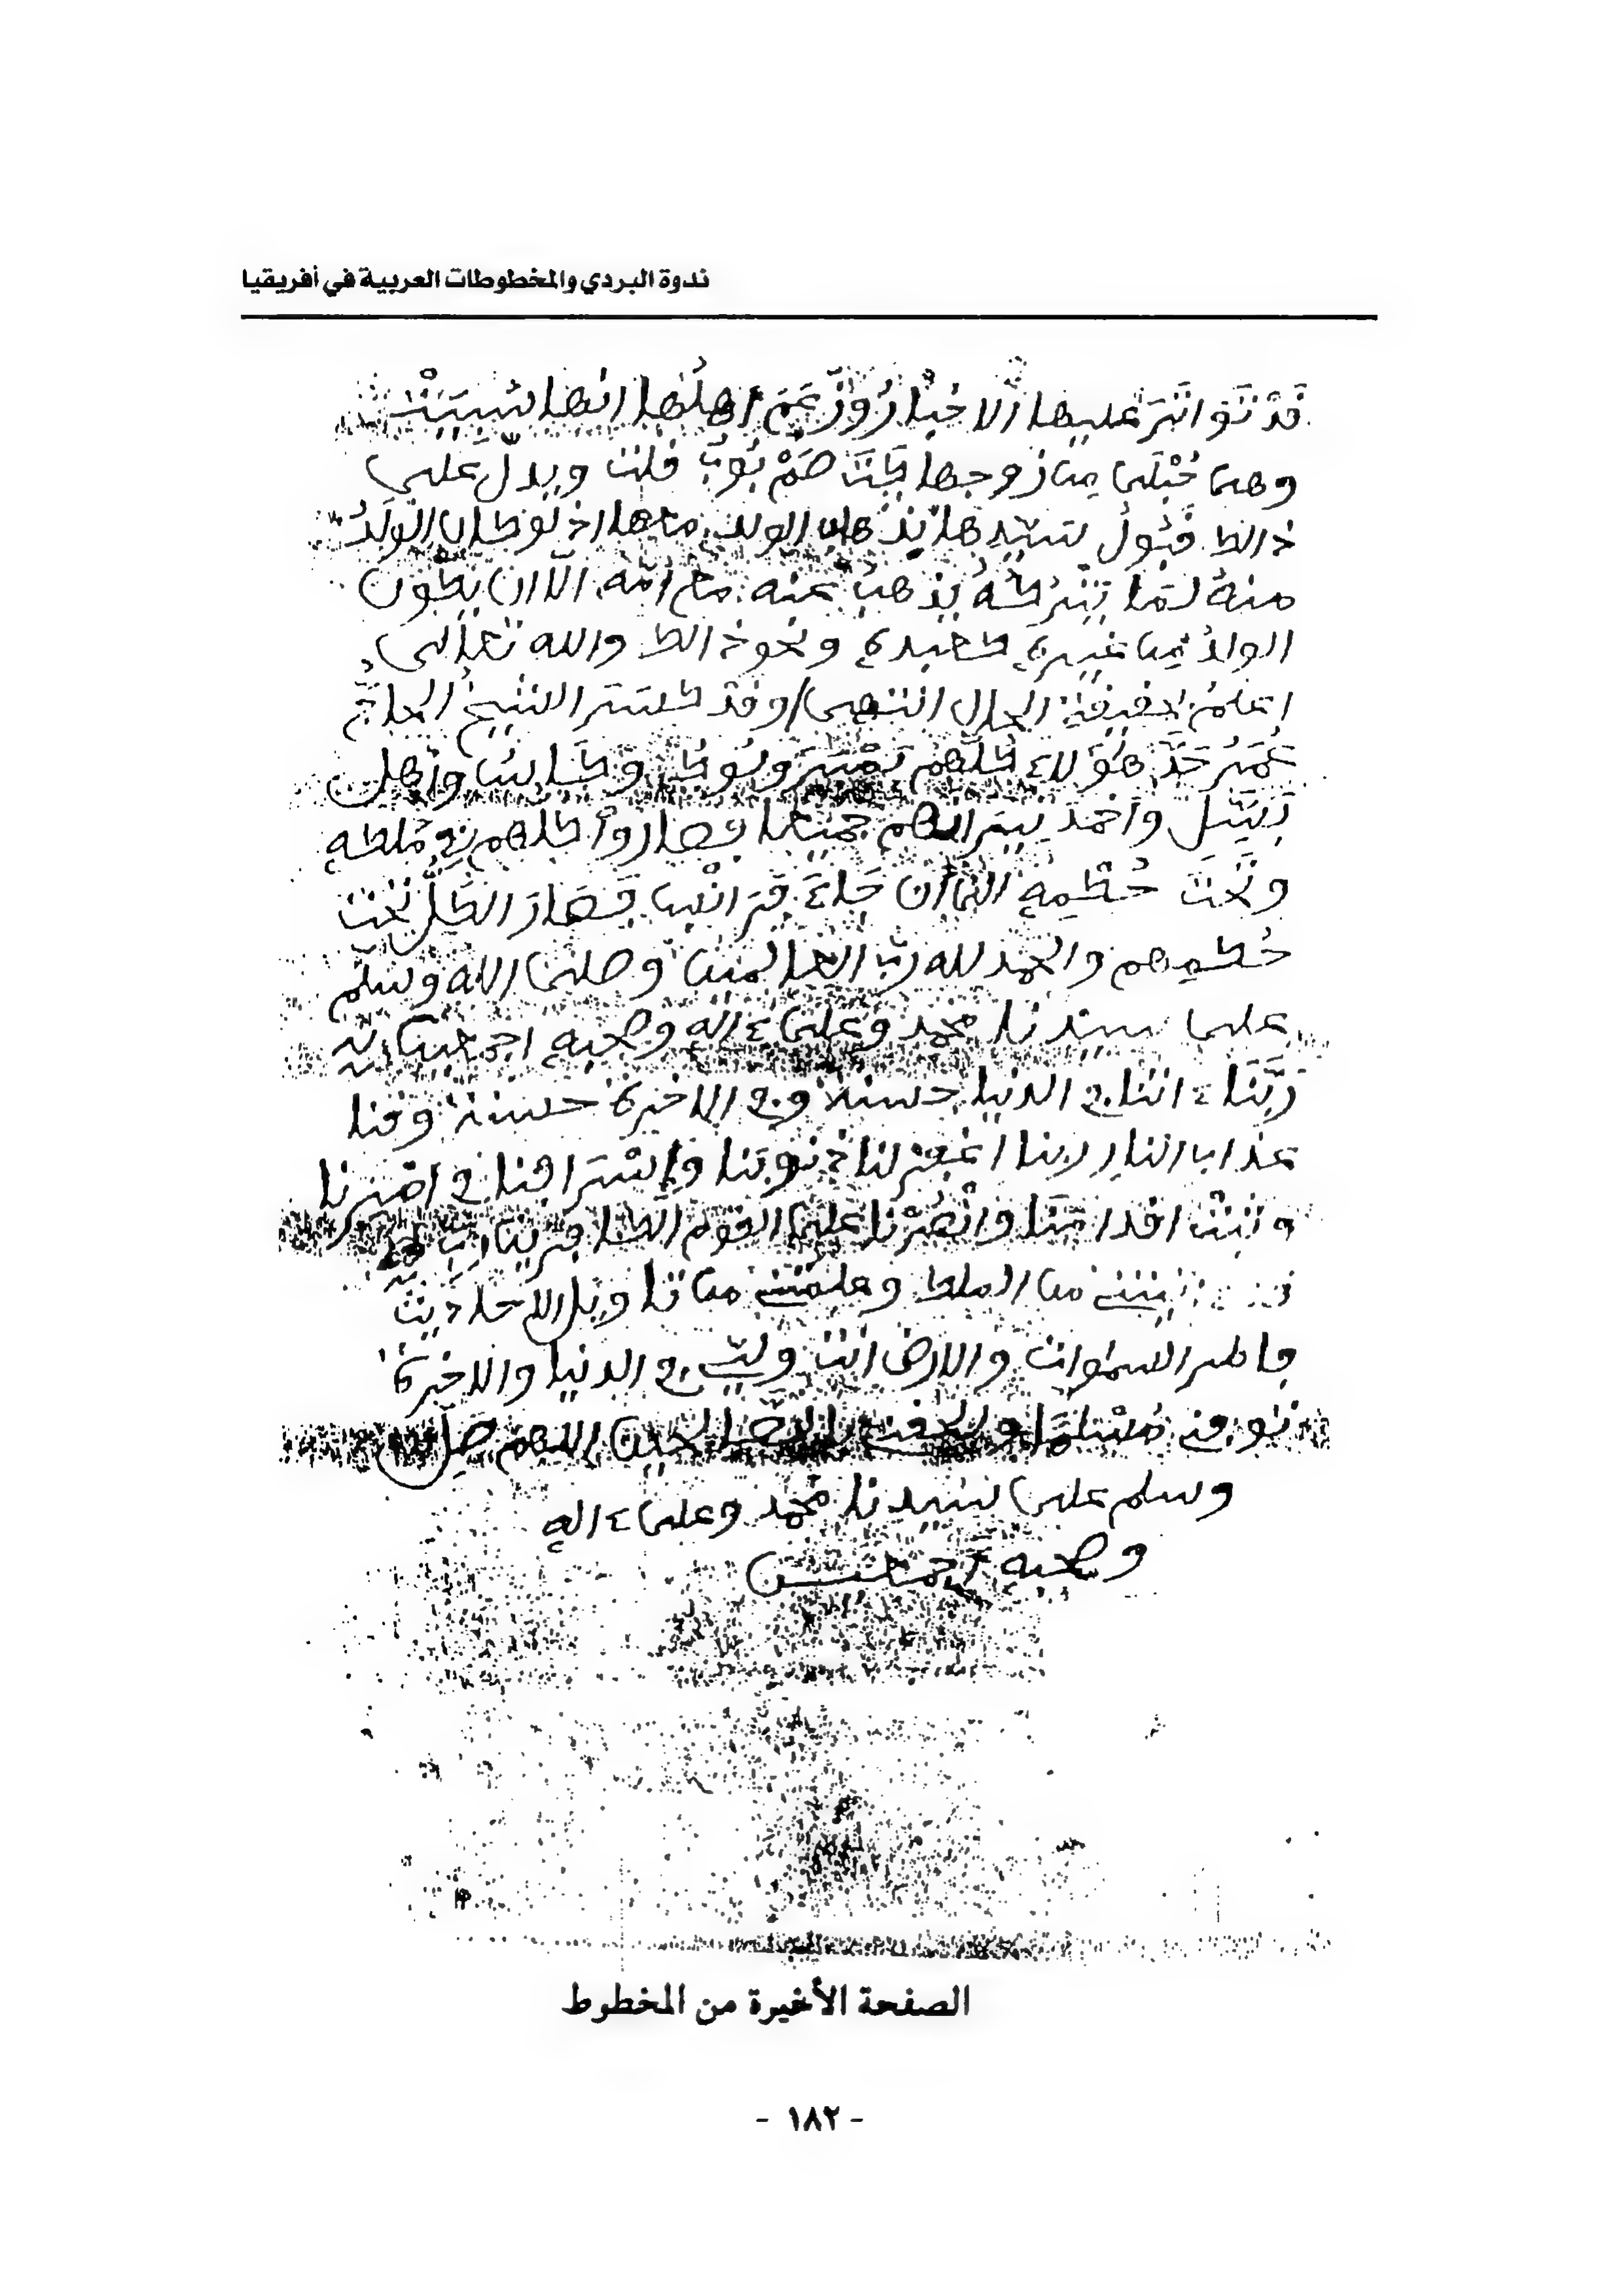 ندوة البردي والمخطوطات العربية في أفريقيا
قَدْ تَوَاتَرَ عليها الاخبارُ وزَعَمَ اهلُها انها سُبِيَتْ
وهى حُبْلَى من زوجها قلت ويدلّ على
ذالك قبولُ سيّدها بذهاب الولد معها اذ لو كان الولَدُ
منهُ لَمَا يَتْركُهُ يذهبُ عنه مع امّه الّا ان يكون
الولدُ من غيره كعبده ونحو ذالك والله تعالى
اعلمُ بحقيقة الحال انتهى وقد كسَر الشيخُ الحاجّ
عُمَرُ هؤلاء كلّهم
وأحمدَ جميعا فصاروا كلهم في مُلكه
وتحت حُكْمِهِ الى أن جاءَ فَصَارَ الكلُّ تحت
حُكمِهم والحمد لله ربّ العالمين وصلى الله وسلّم
على سيدنا محمد وعلى ءاله وصحبه اجمعين
رَبَّنَا ءاتنا في الدنيا حسنة وفي الاخرة حسنة وقنا
عذاب النار ربنا اغفر لنا ذنوبَنا وإسْرَافنا في امْرنا
وثبّتْ اقدامَنَا وانْصُرْنا على القوم الكافرين ربّ قد
ءاتيتني من الملك وعلمتني من تاويل الاحاديث
فاطر السموات والارض انت وليّي في الدنيا والاخرة
توفني مُسْلِمًا وألحقني بالصّالحين اللهم صلّ
وسلم على سيدنا محمد وعلى ءاله
وصحبه أجمعين
الصفحة الأخيرة من المخطوط
- ١٨٢ -